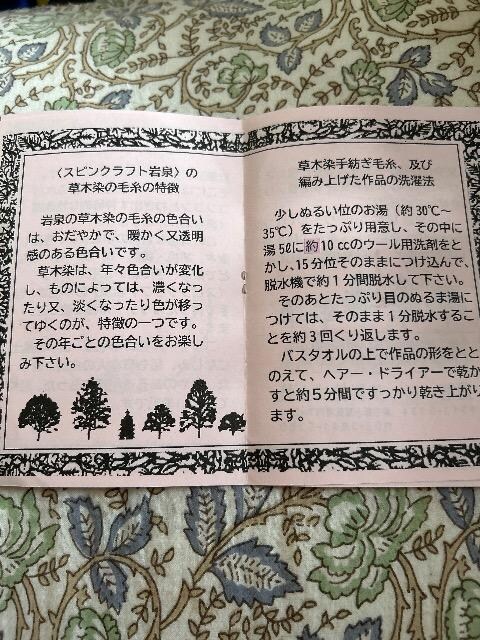 〈スピンクラフト岩泉〉の
草木染の毛糸の特徴
岩泉の草木染の毛糸の色合い
は、おだやかで、暖かく又透明
感のある色合いです。
草木染は、年々色合いが変化
し、ものによっては、濃くなっ
たり又、淡くなったり色が移っ
てゆくのが、特徴の一つです。
その年ごとの色合いをお楽し
み下さい。
草木染手紡ぎ毛糸、及び
編み上げた作品の洗濯法
少しぬるい位のお湯（約30℃～
35℃）をたっぷり用意し、その中に
湯5ℓに約10ccのウール用洗剤をと
かし、15分位そのままにつけ込んで、
脱水機で約1分間脱水して下さい。
そのあとたっぷり目のぬるま湯に
つけては、そのまま1分脱水するこ
とを約3回くり返します。
バスタオルの上で作品の形をとと
のえて、ヘアー・ドライアーで乾か
すと約5分間ですっかり乾き上がり
ます。